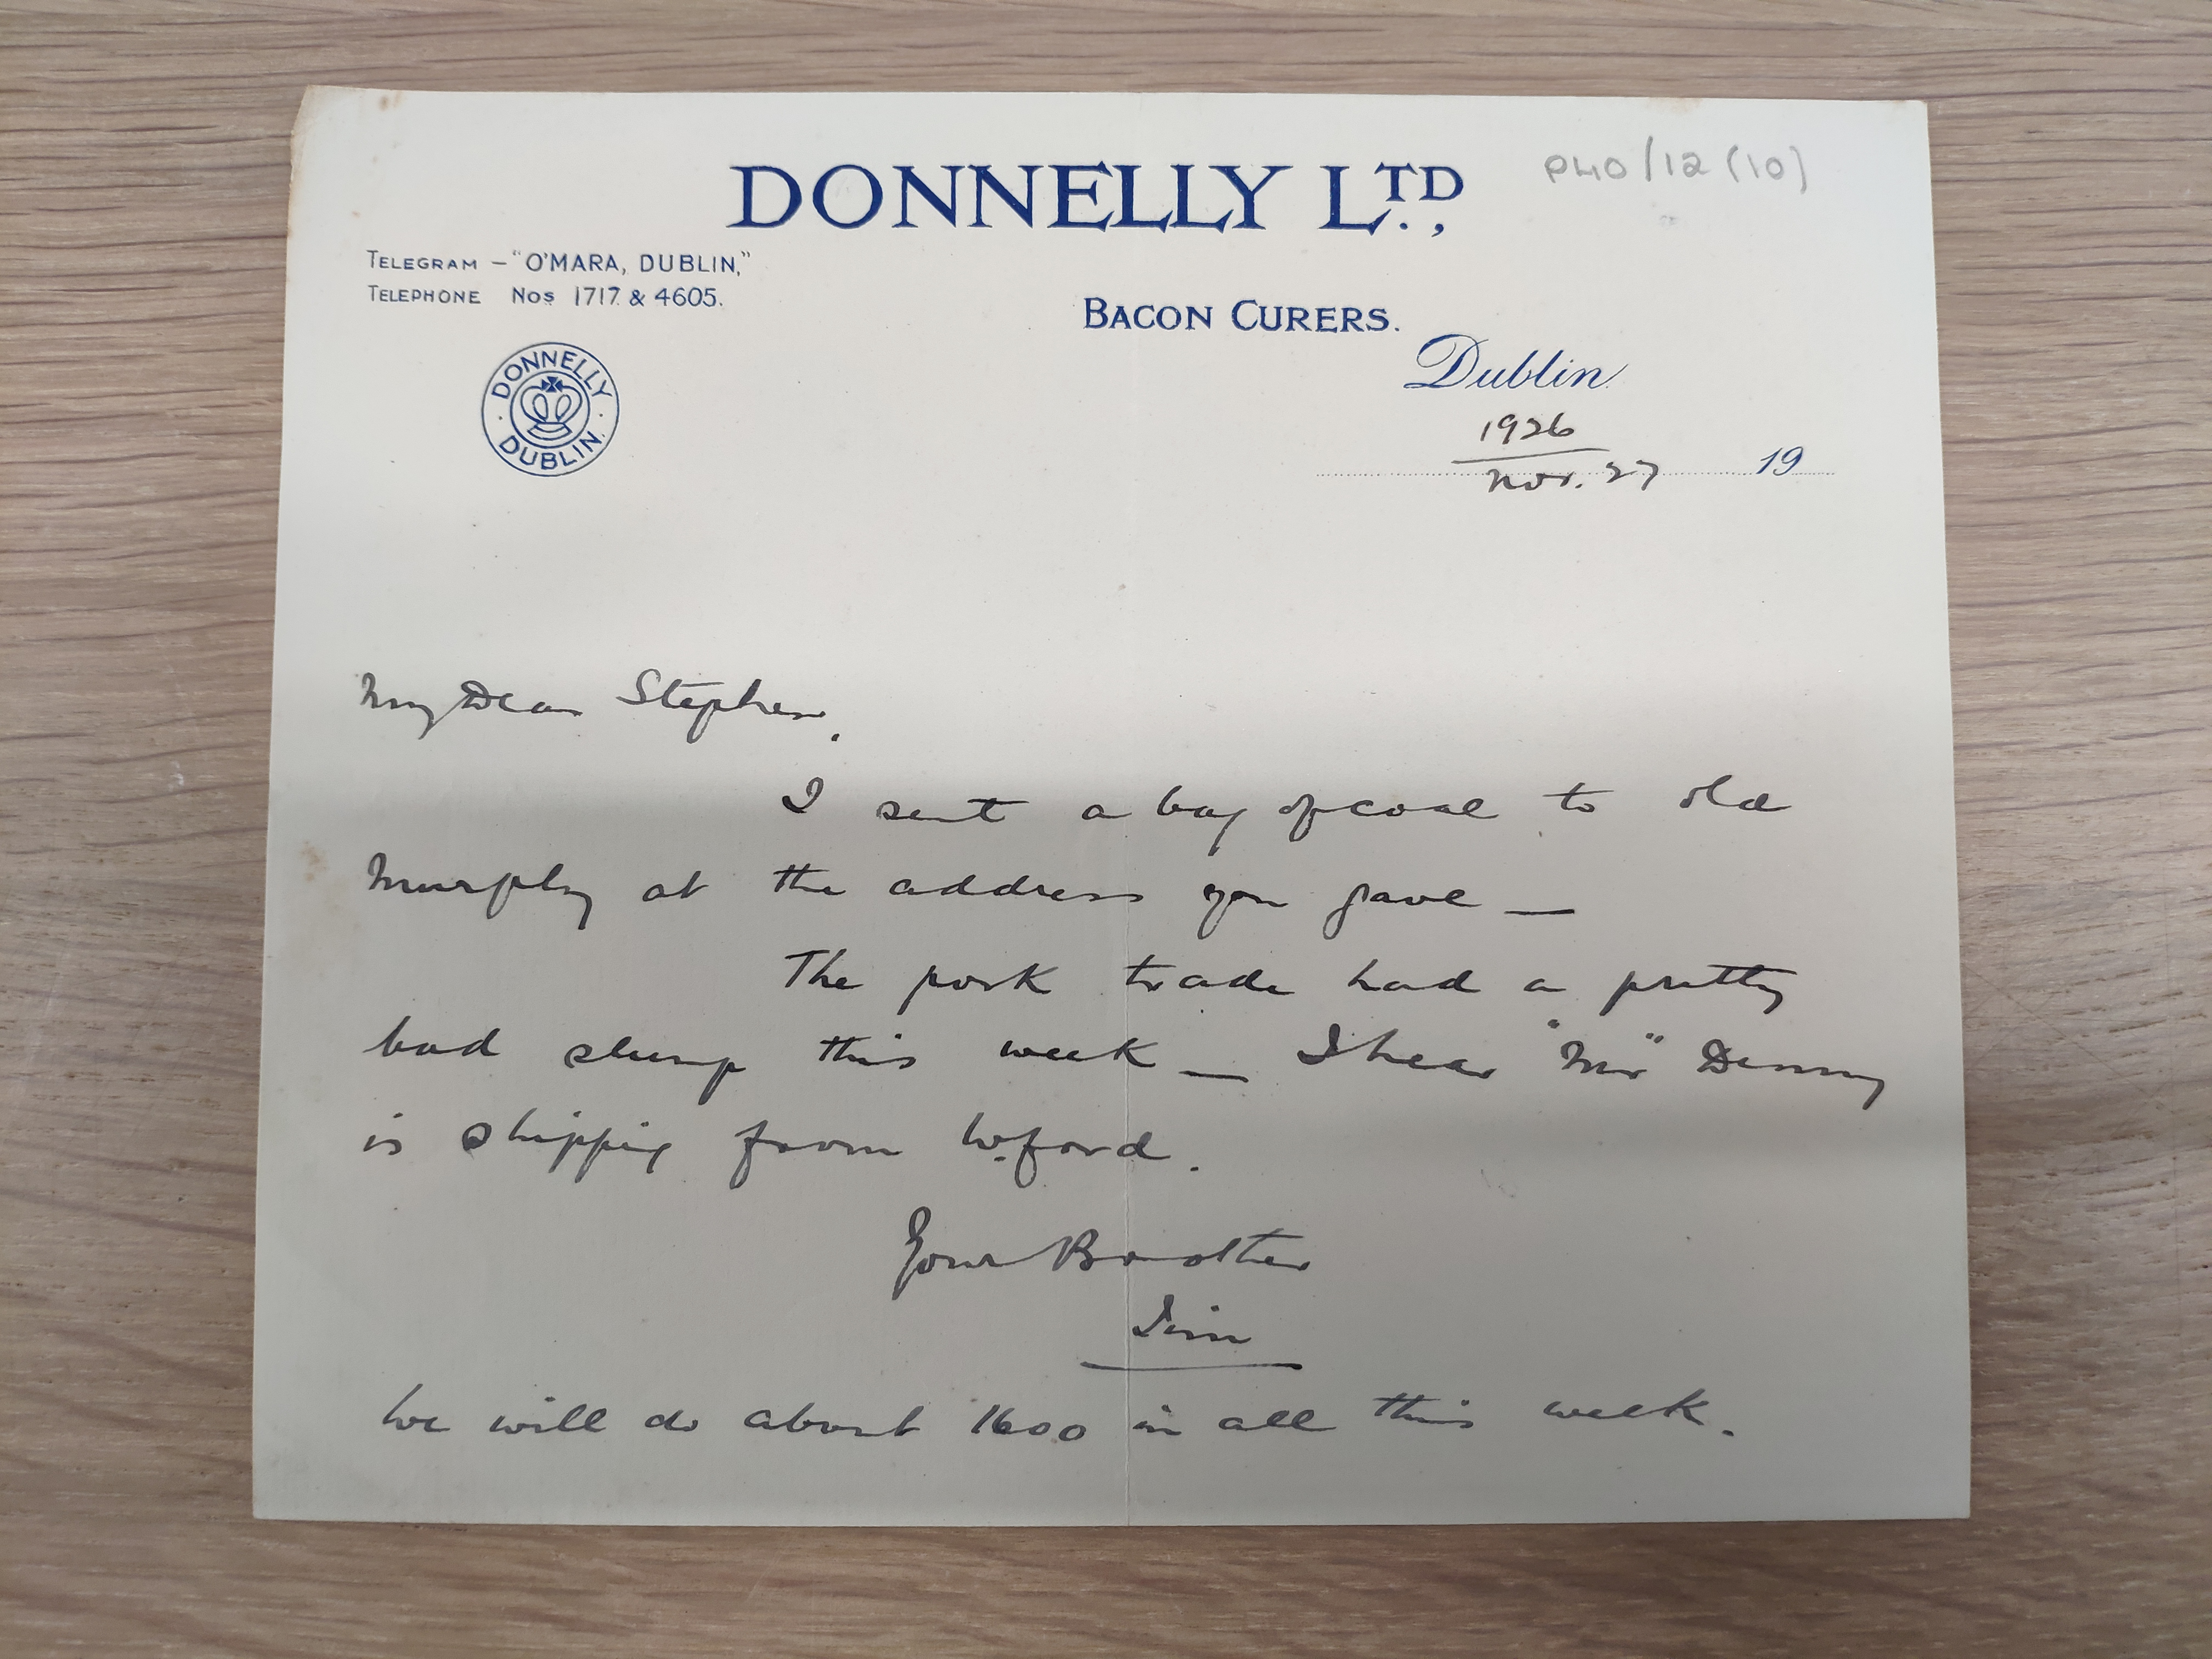 DONNELLY LTD.,
P40/12 (10)
TELEGRAM – "O'MARA, DUBLIN,"
TELEPHONE Nos 1717 & 4605.
BACON CURERS.
DONNELLY
DUBLIN.
Dublin
1926
Nov. 27 19
My Dear Stephen,
I sent a bag of coal to old
Murphy at the address you gave —
The pork trade had a pretty
bad slump this week — I hear "Mr" Denny
is shipping from W.ford.
Your Brother
Jim
We will do about 1600 in all this week.